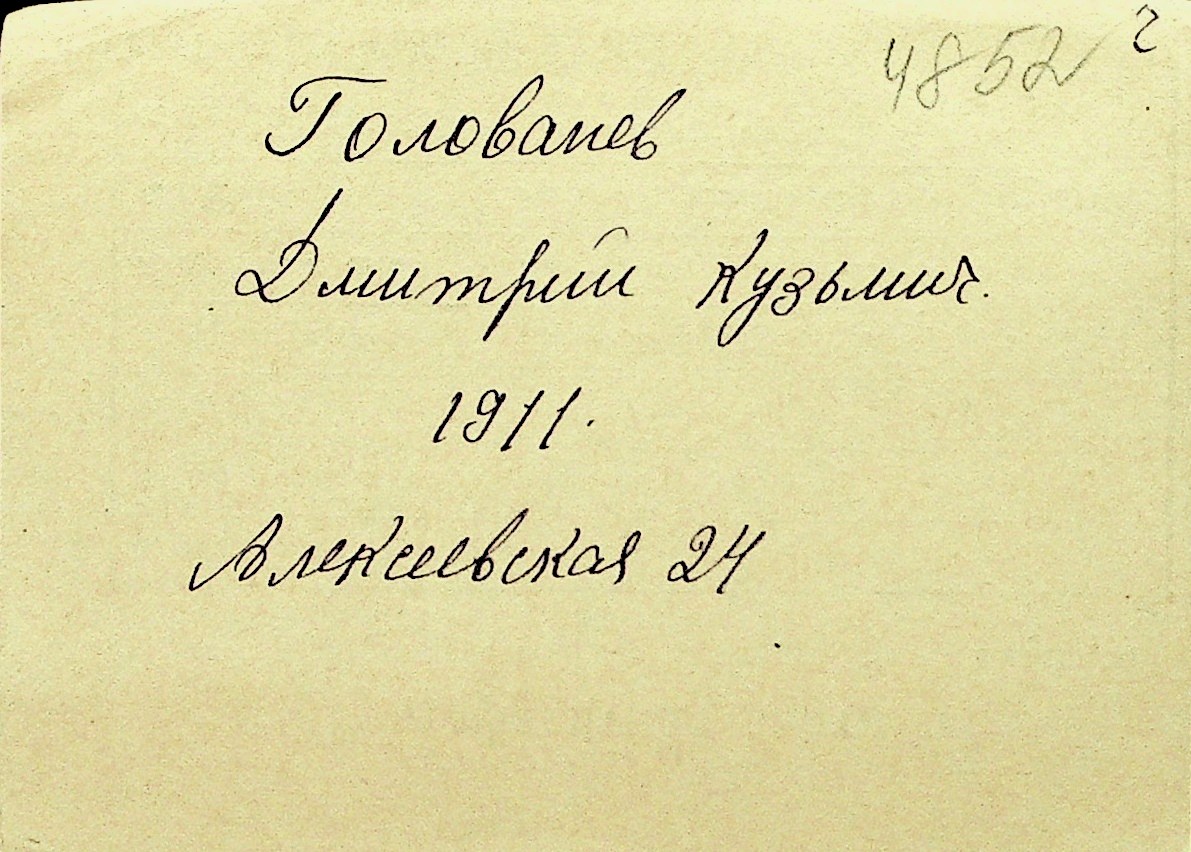 4852 г
Голованев
Дмитрий Кузьмич.
1911.
Алексеевская 24